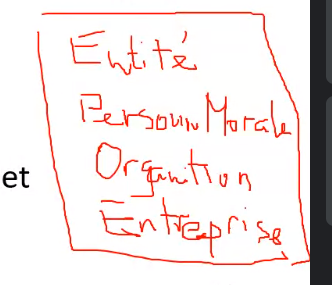 Entité
Personn Morale
et Organition
Entreprise